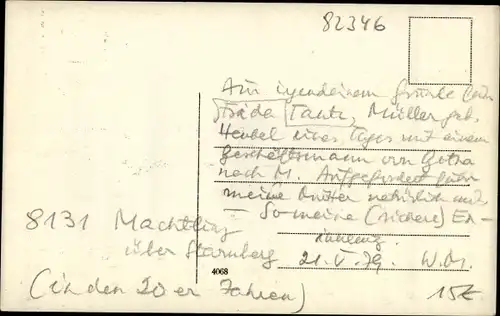 82346
Aus irgendeinem Grunde fuhr
Frieda Tante, Müller geb.
Henkel eines Tages mit einem
Geschäftsmann von Gotha
nach M. Aufgefordert fuhr
meine Mutter natürlich mit
— So meine (sichere) Er-
innerung.
21. V. 79. W. M.
8131 Machtlfing
über Starnberg
4068
(in den 20er Jahren)
15€